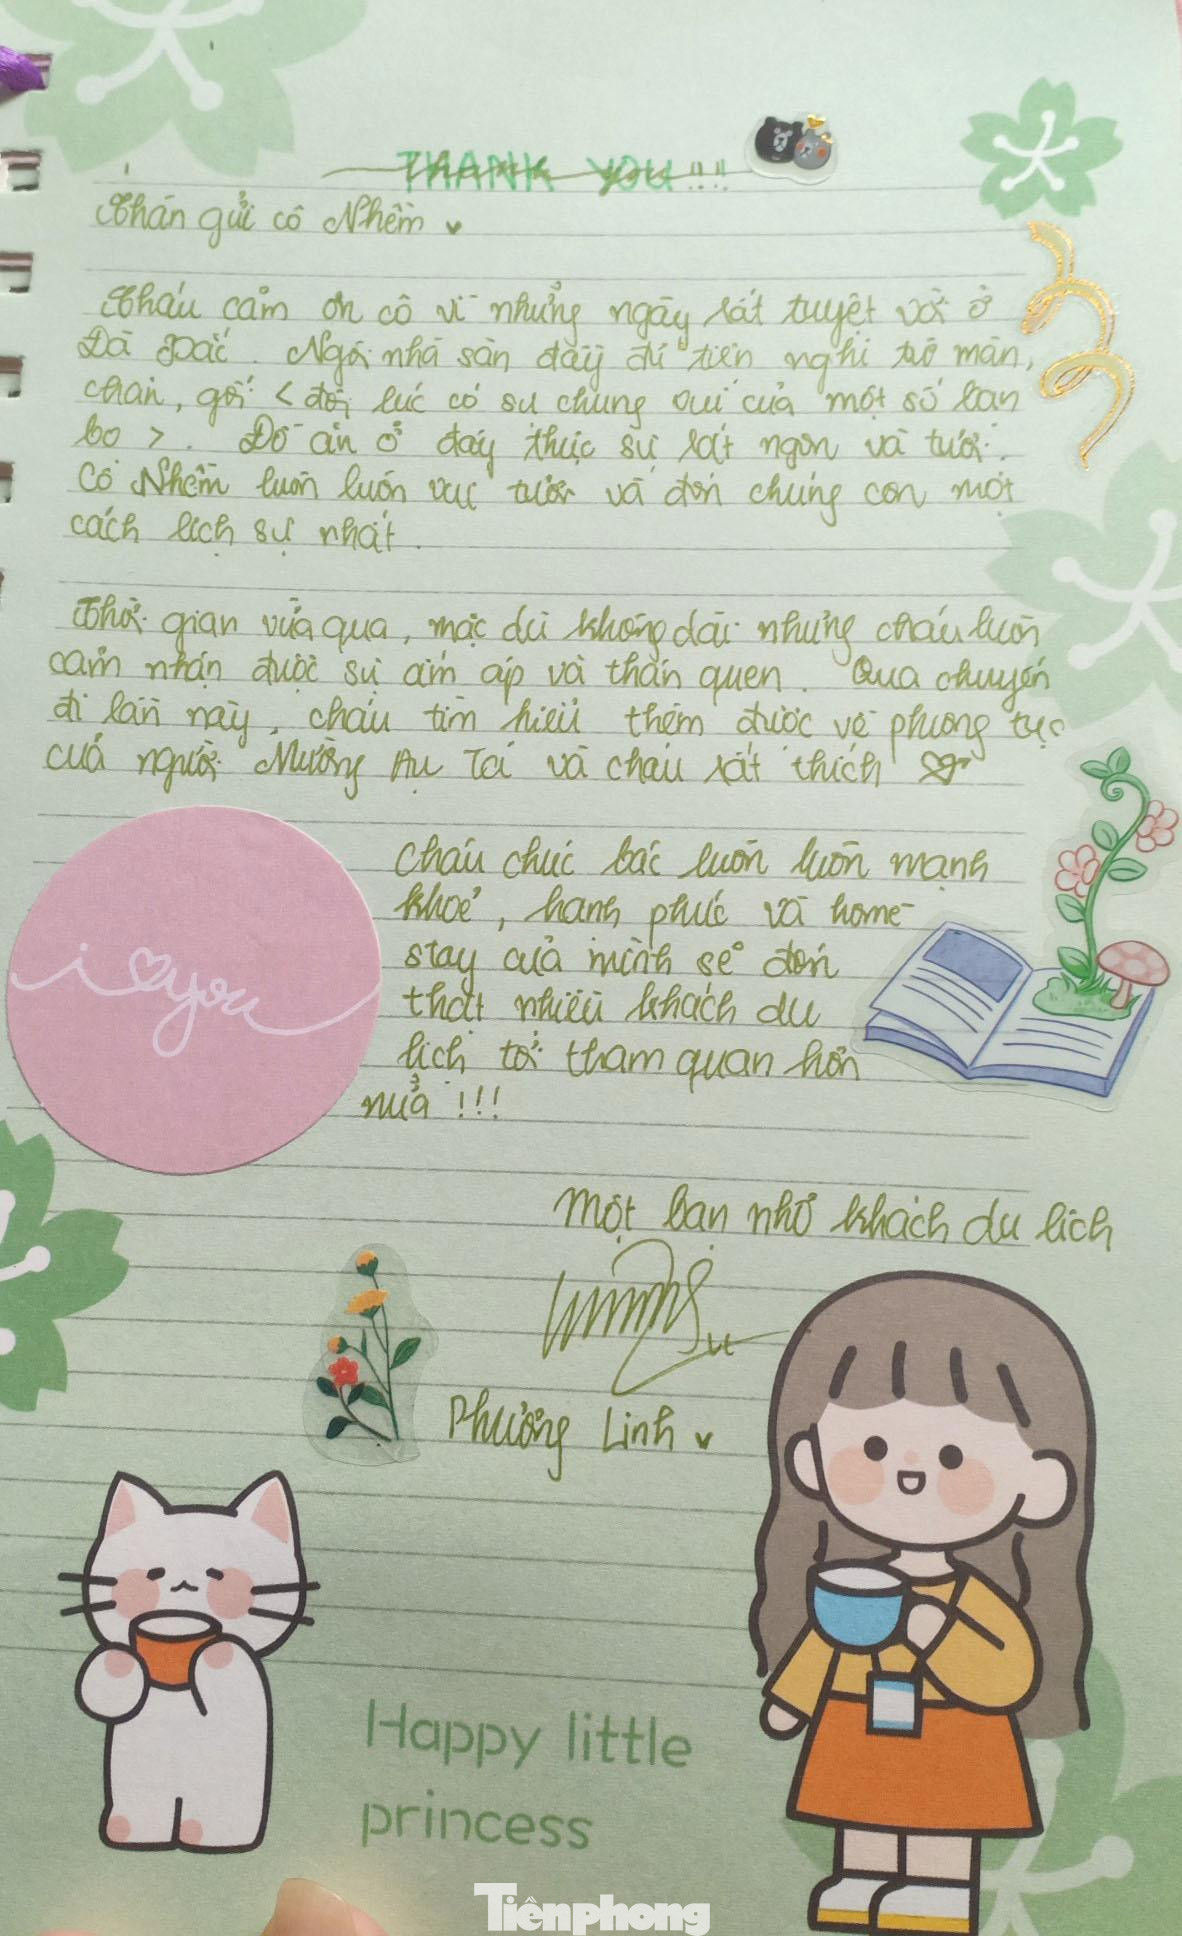 THANK YOU!!!
Thân gửi cô Nhềm
Cháu cảm ơn cô vì những ngày rất tuyệt vời ở
Đà Bắc. Ngôi nhà sàn đầy đủ tiện nghi từ màn,
chăn, gối < đôi lúc có sự chung vui của một số bạn
bọ >. Đồ ăn ở đây thực sự rất ngon và tươi.
Cô Nhềm luôn luôn vui tươi và đón chúng con một
cách lịch sự nhất.
Thời gian vừa qua, mặc dù không dài nhưng cháu luôn
cảm nhận được sự ấm áp và thân quen. Qua chuyến
đi lần này, cháu tìm hiểu thêm được về phong tục
của người Mường Au Tá và cháu rất thích
Cháu chúc bác luôn luôn mạnh
khoẻ, hạnh phúc và home-
stay của mình sẽ đón
thật nhiều khách du
lịch tới tham quan hơn
nữa !!!
i you
Một bạn nhỏ khách du lịch
Phương Linh
Happy little
princess
Tiênphong